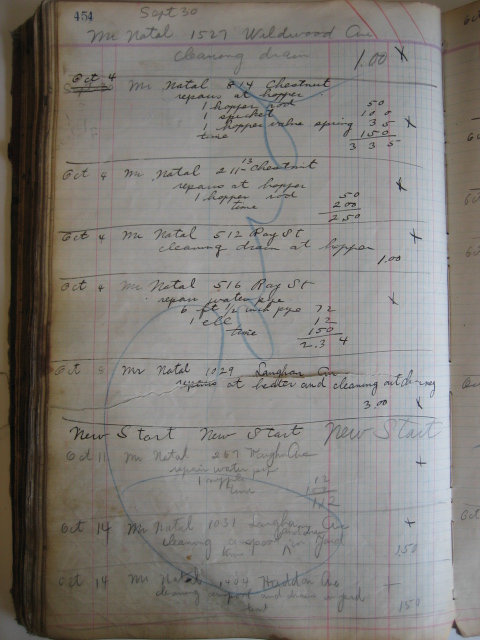 454
Sept 30
Mr Natal 1527 Wildwood Ave
cleaning drain 1.00 X
Oct 4 Mr Natal 814 Chestnut
repairs at hopper
1 hopper rod 50
1 spicket 100
1 hopper valve spring 35
time 150
3 3 5
Oct 4 Mr Natal 211-13 Chestnut X
repairs at hopper
1 hopper rod 50
time 200
250
Oct 4 Mr Natal 512 Ray St X
cleaning drain at hopper
1.00
Oct 4 Mr Natal 516 Ray St
repair water pipe X
6 ft 1/2 inch pipe 72
1 ell 12
time 150
2.34
Oct Mr Natal 1029 Langham Ave
repairs at heater and cleaning out
3.00 X
New Start New Start New Start
Oct 11 Mr Natal 267 Ave
repair water pipe
1 12
time
Oct 14 Mr Natal 1031 Langham Ave
cleaning in yard
150
Oct 14 Mr Natal 1404 Haddon Ave
cleaning and drain in yard
150